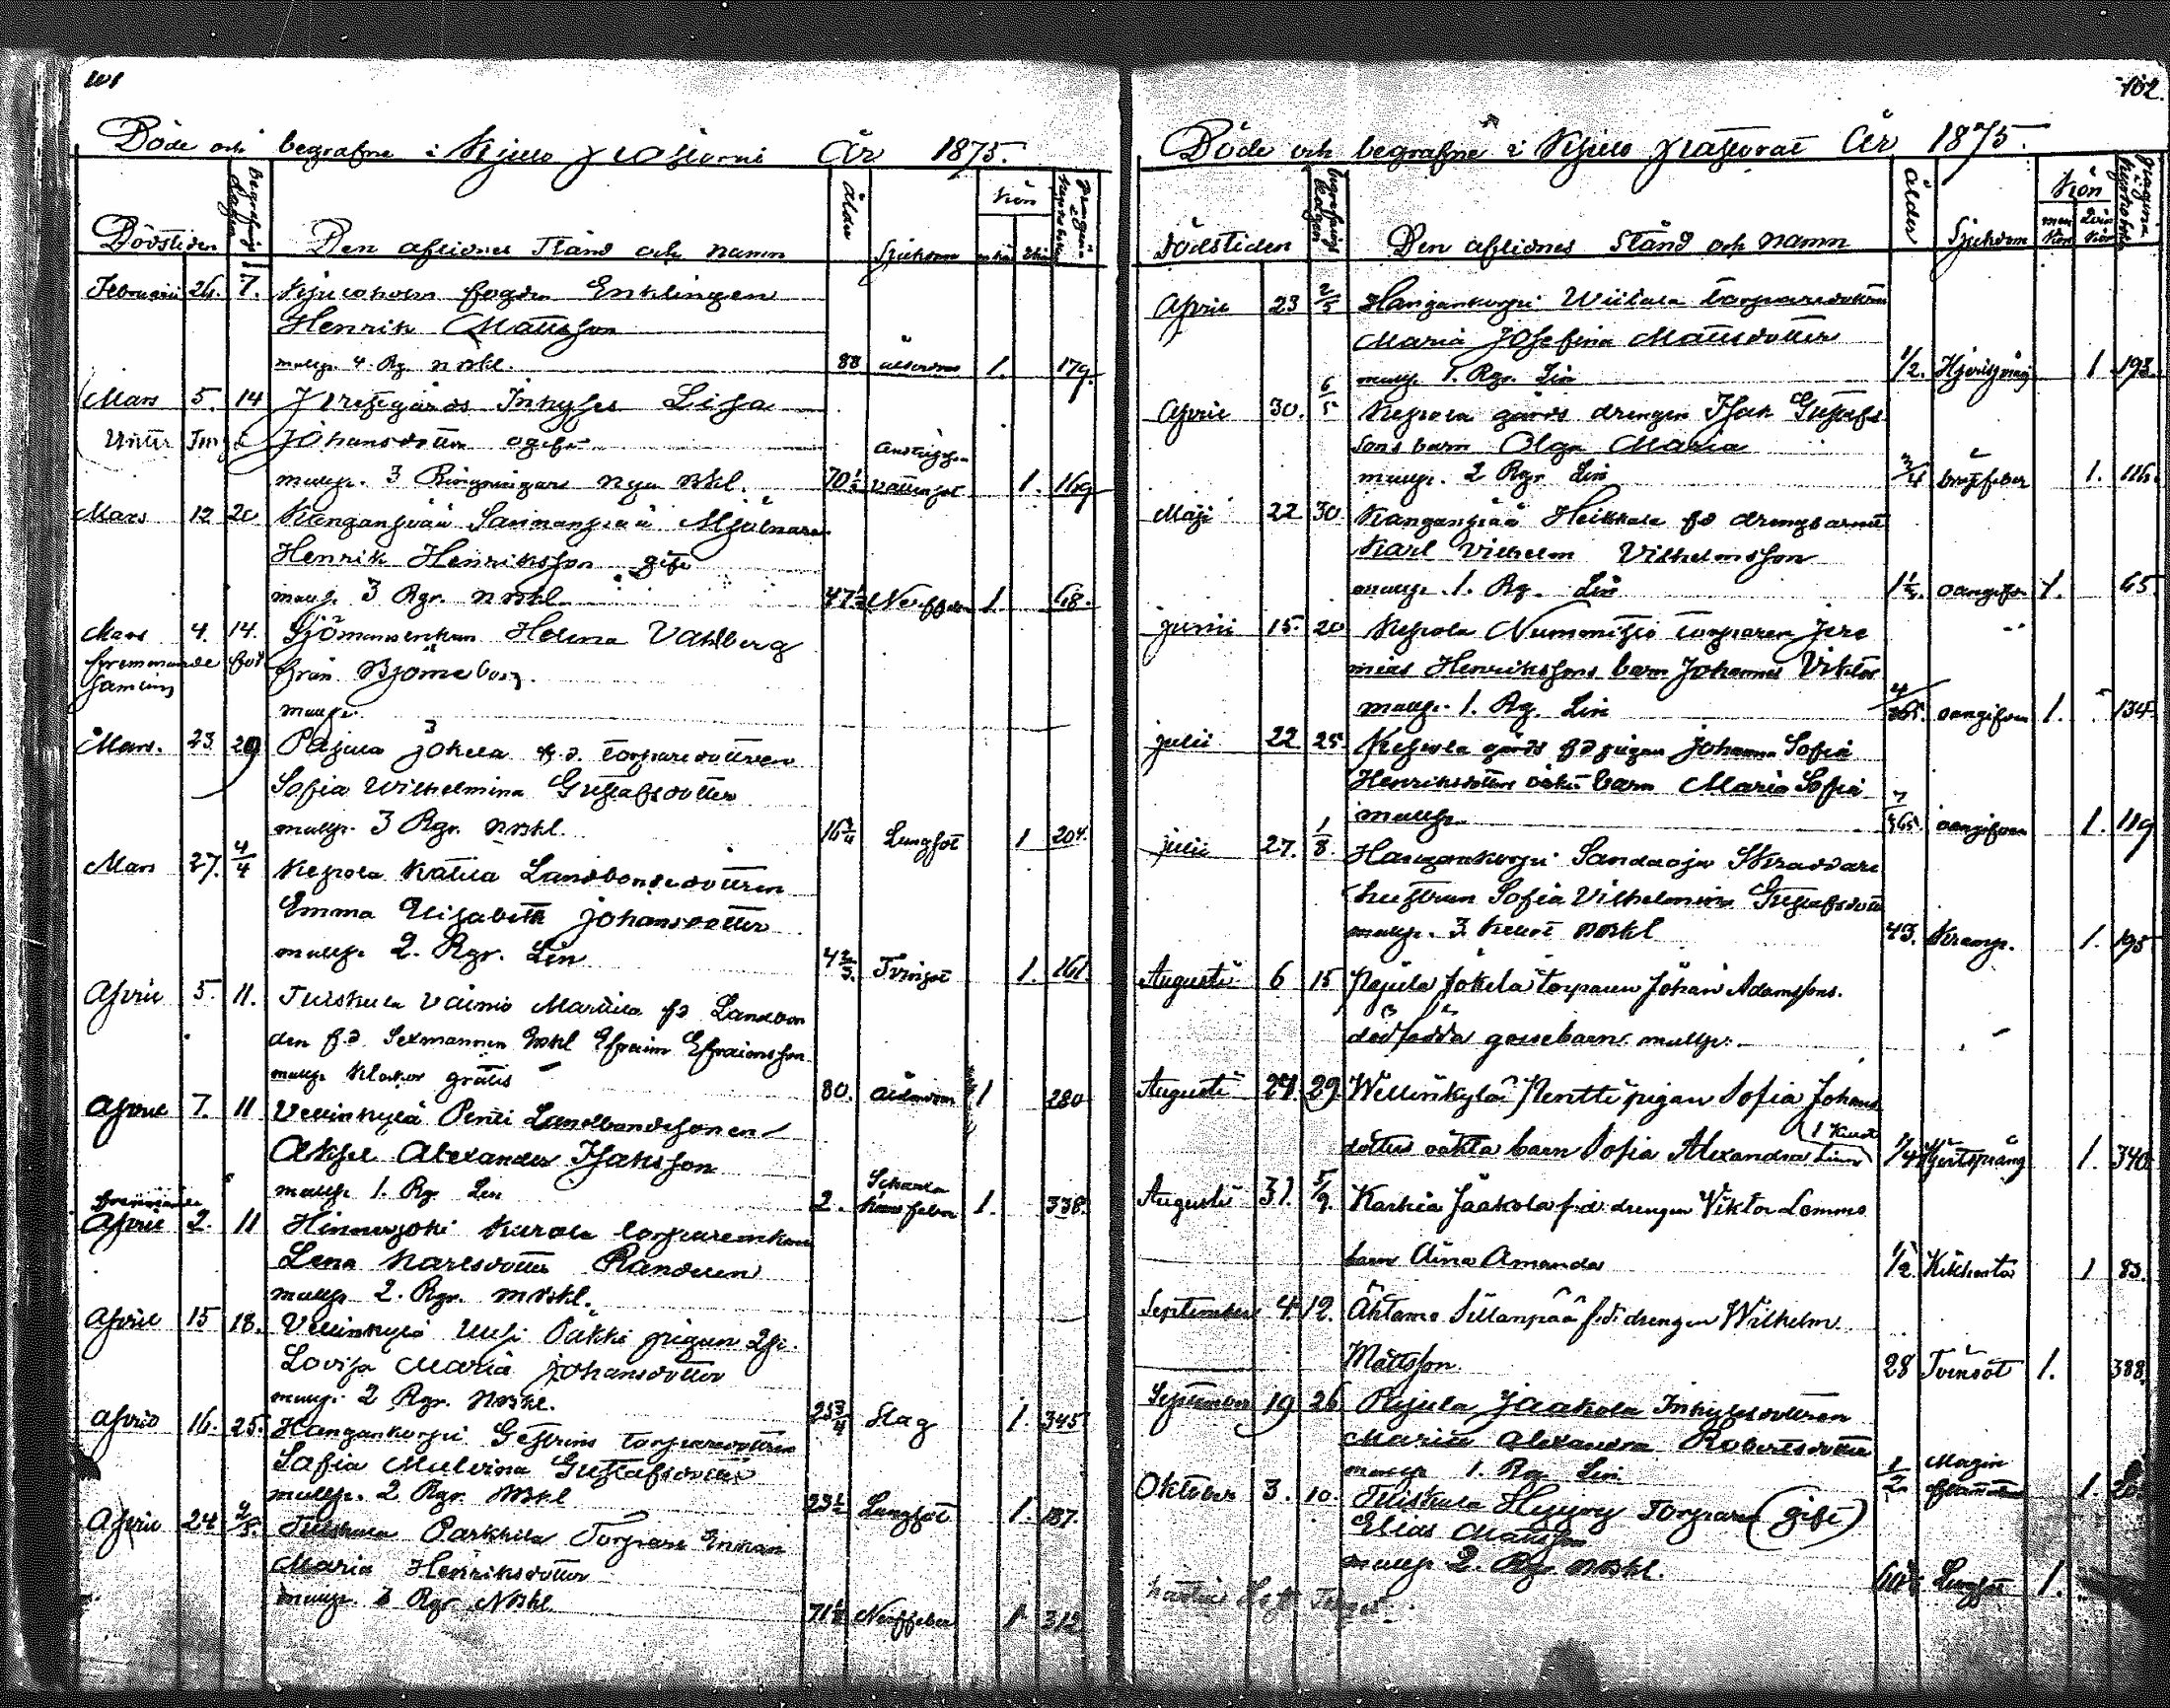 101
Döde och begrafne i Kjulo pastorat År 1875.
Dödstiden Begrafnings Dagen Den aflidnes Stånd och namn ålder Sjukdom Kön
Februarii 26. 7. Kjuloholm fogden Enklingen
Henrik Mattsson
mullp. 4. Rg. 88 ålderdom 1. 179.
Mars 5. 14 Prestgårds Inhyses Lisa
Johansdotter ogift
mullp. 3 Ringningar nya 70½ vattusot 1. 169
Mars 12 20 Kanganpää Sannanpää Mjölnare
Henrik Henriksson gift
mullp. 3 Rgr. 47½ Nerffeber 1. 68.
Mars 4. 14. Sjömansenkan Helena Vahlberg
fremmande för från Björneborg.
mullp.
Mars. 23 29 Pajula Jokela f.d. torparedottren
Sofia Wilhelmina Gustafsdotter
mullp. 3 Rgr. 16¾ Lungsot 1 204.
Mars 27. 4/4 Kepola Kattila Landbondedottren
Emma Elisabeth Johansdotter
mullp. 2. Rgr. Lin 4⅔. Tvinsot 1. 161.
April 5. 11. Tuiskula Vainio Marttila fd Landbon
den f.d. Sexmannen Efraim Efraimsson
mullp. Klockor gratis 80. ålderdom 1 280
April 7. 11 Vellinkylä Pentti Landbondesonen
Aksel Alexander Isaksson
mullp. 1. Rg. Lin 2. Scharlakansfeber 1. 338.
fremmande
April 2. 11 Hinnerjoki Kurola torpareenkan
Lena Karlsdotter Randelin
mullp. 2. Rgr.
April 15 18. Vellinkylä Uusi Pakki pigan
Lovisa Maria Johansdotter
mullp. 2 Rgr. 25¾ Slag 1. 345
April 16. 25. Hangankorpi Gestrins torparedottren
Sofia Malvina Gustafsdotter
mullp. 2 Rgr. 23½ Lungsot 1. 187.
April 24 2/5. Tuiskula Parkkila Torpare Enkan
Maria Henriksdotter
mullp. 3 Rgr. 71½ Nerffeber 1 312
102.
Döde och begrafne i Kjulo pastorat År 1875.
Dödstiden begrafnings dagen Den aflidnes Stånd och namn ålder Sjukdom Kön
April 23 2/5 Hangankorpi Wiitala torparedottren
Maria Josefina Mattsdotter
mullp. 1. Rgr. Lin ½. Hjertsprång 1 193.
April 30. 6/5 Kepola gårds drengen Isak Gustafs
sons barn Olga Maria
mullp. 2 Rgr. Lin ¾ bröstfeber 1. 116.
Maji 22 30. Kanganpää Heikkala fd drengbarnet
Karl Vilhelm Vilhelmsson
mullp. 1. Rg. Lin oangifven 1. 65
Junii 15. 20 Kepola Nummitzio torparen Jere
mias Henrikssons barn Johannes Viktor
mullp. 1. Rg. Lin 4/365. oangifven 1. 134
Julii 22 25 Kepola gårds fd pigan Johanna Sofia
Henriksdotters oäkta barn Maria Sofia
mullp. 7/365. oangifven 1. 119
Julii 27. 1/8. Hangankorpi Sandaoja Skraddare
hustrun Sofia Vilhelmina Gustafsdotter
mullp. 3 43. Kramp. 1. 195
Augusti 6 15 Pajula Jokela torparen Johan Adamssons.
dödfödda gossebarn. mullp.
Augusti 24. 29. Wellinkylä Pentti pigan Sofia Johans
dotters oäkta barn Sofia Alexandra ¼ Hjertsprång 1. 340
Augusti 31. 5/9. Karhia Jaakola f.d. drengen Viktor Lemmo
barn Aina Amanda ½ Kikhosta 1 83.
September 4. 12. Ähtämö Sillanpää f.d. drengen Wilhelm
Mattsson 28 Tvinsot 1. 388.
September 19 26 Pajula Jaakola Inhysesdottren
Maria Alexandra Robertsdotter
mullp. 1. Rg. Lin ½ Magin 1.
Oktober 3. 10. Tuiskula Hyypy Torparen (gift)
Elias Mattsson
mullp. 2. Rgr. Lungsot 1.